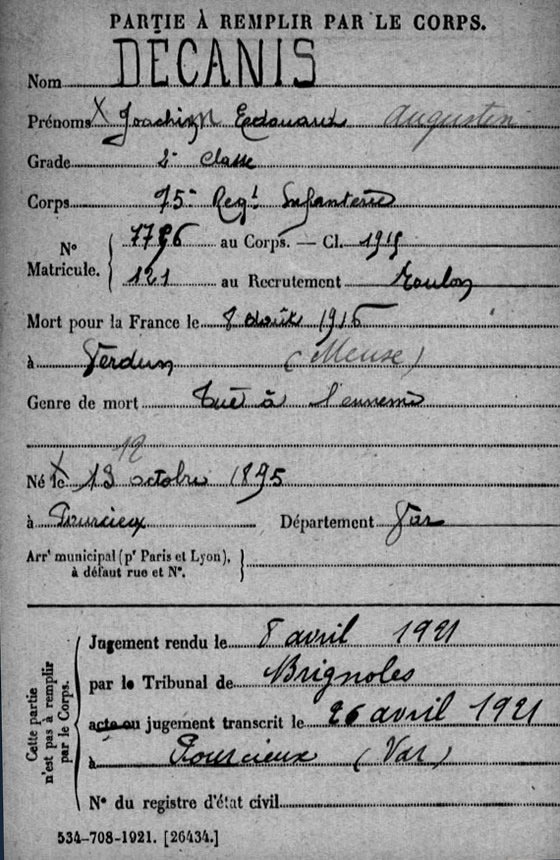 PARTIE À REMPLIR PAR LE CORPS.
Nom DÉCANIS
Prénoms X Joachim Edouard Augustin
Grade 2e classe
Corps 75e Regt Infanterie
N° Matricule. 7796 au Corps. — Cl. 1915
121 au Recrutement Toulon
Mort pour la France le 8 août 1916
à Verdun (Meuse)
Genre de mort Tué à l'ennemi
12
Né le X 13 octobre 1895
à Pourcieux Département Var
Arrt municipal (pr Paris et Lyon), à défaut rue et N°.
Cette partie n'est pas à remplir par le Corps.
Jugement rendu le 8 avril 1921
par le Tribunal de Brignoles
acte ou jugement transcrit le 26 avril 1921
à Pourcieux (Var)
N° du registre d'état civil
534-708-1921. [26434.]